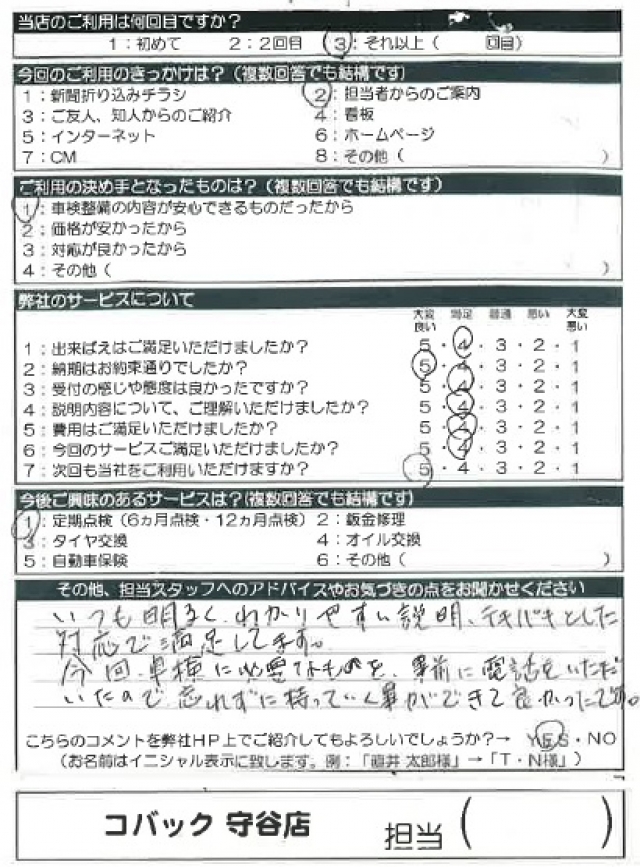 当店のご利用は何回目ですか？
1：初めて　2：2回目　3：それ以上（　回目）
今回のご利用のきっかけは？（複数回答でも結構です）
1：新聞折り込みチラシ　2：担当者からのご案内
3：ご友人、知人からのご紹介　4：看板
5：インターネット　6：ホームページ
7：CM　8：その他（　）
ご利用の決め手となったものは？（複数回答でも結構です）
1：車検整備の内容が安心できるものだったから
2：価格が安かったから
3：対応が良かったから
4：その他（　）
弊社のサービスについて
大変良い　満足　普通　悪い　大変悪い
1：出来ばえはご満足いただけましたか？　5・4・3・2・1
2：納期はお約束通りでしたか？　5・4・3・2・1
3：受付の感じや態度は良かったですか？　5・4・3・2・1
4：説明内容について、ご理解いただけましたか？　5・4・3・2・1
5：費用はご満足いただけましたか？　5・4・3・2・1
6：今回のサービスご満足いただけましたか？　5・4・3・2・1
7：次回も当社をご利用いただけますか？　5・4・3・2・1
今後ご興味のあるサービスは？(複数回答でも結構です)
1：定期点検（6ヵ月点検・12ヵ月点検）2：鈑金修理
3：タイヤ交換　4：オイル交換
5：自動車保険　6：その他（　）
その他、担当スタッフへのアドバイスやお気づきの点をお聞かせください
いつも明るく、わかりやすい説明、テキパキとした
対応で満足してます。
今回、車検に必要なものを、事前に電話をいただ
いたので、忘れずに持っていく事ができて良かったです。
こちらのコメントを弊社HP上でご紹介してもよろしいでしょうか？→ YES・NO
（お名前はイニシャル表示に致します。例：「直井 太郎様」→「T・N様」）
コバック 守谷店　担当（　）